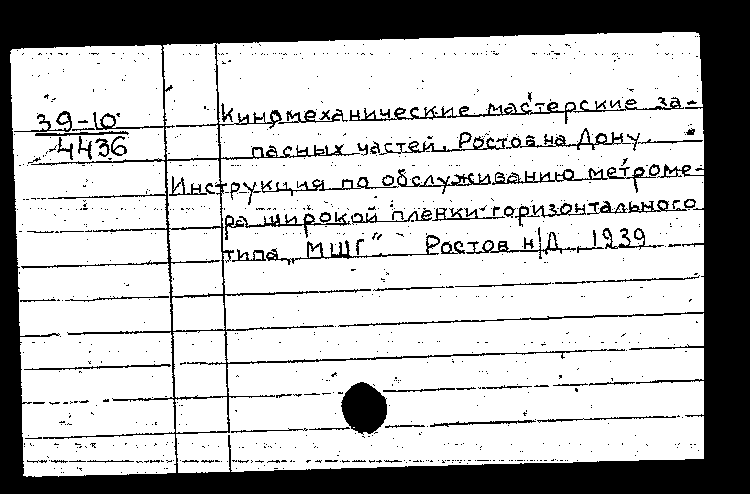 39-10
4436
Киномеханические мастерские за-
пасных частей. Ростов на Дону.
Инструкция по обслуживанию метроме-
ра широкой пленки горизонтального
типа „МШГ“. Ростов н/Д, 1939